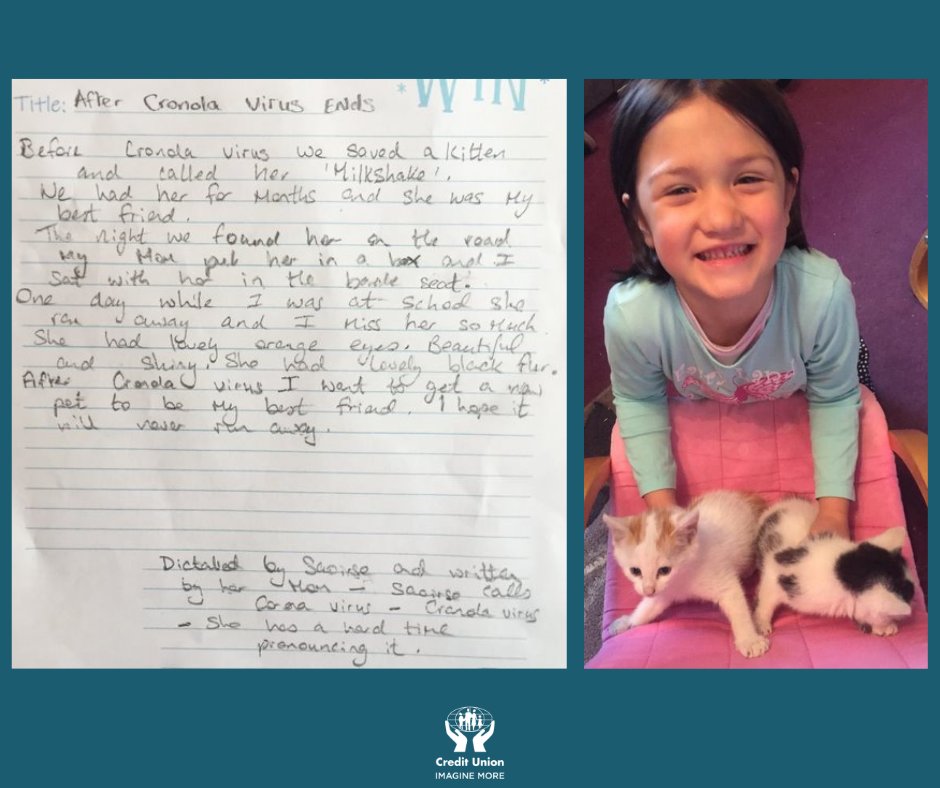 WIN
Title: After Cronola Virus Ends
Before Cronola virus we saved a kitten
and called her 'Milkshake'.
We had her for Months and she was My
best friend.
The night we found her on the road
My Mom put her in a box and I
Sat with her in the back seat.
One day while I was at school she
ran away and I Miss her so Much.
She had lovely orange eyes. Beautiful
and shiny. She had lovely black fur.
After Cronola virus I want to get a new
pet to be My best friend. I hope it
will never run away.
Dictated by Saoirse and written
by her Mom – Saoirse calls
Corona virus – Cronola virus
– She has a hard time
pronouncing it.
Credit Union
IMAGINE MORE